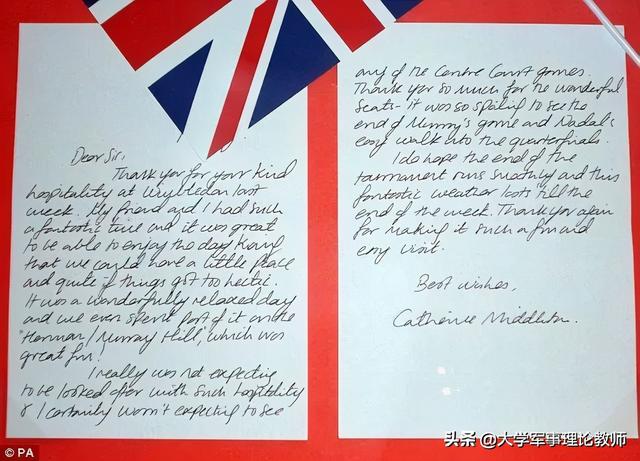 Dear Sir,
Thank you for your kind
hospitality at Wimbledon last
week. My friend and I had such
a fantastic time and it was great
to be able to enjoy the day knowing
that we could have a little peace
and quite if things got too hectic.
It was a wonderfully relaxed day
and we even spent part of it on the
"Henman/Murray Hill", which was
great fun!
I really was not expecting
to be looked after with such hospitality
& I certainly wasn't expecting to see
any of the Centre Court games.
Thank you so much for the wonderful
seats - it was so spoiling to see the
end of Murray's game and Nadal's
easy walk into the quarterfinals.
I do hope the end of the
tournament runs smoothly and this
fantastic weather lasts till the
end of the week. Thank you again
for making it such a fun and
easy visit.
Best wishes,
Catherine Middleton.
© PA
头条 @大学军事理论教师